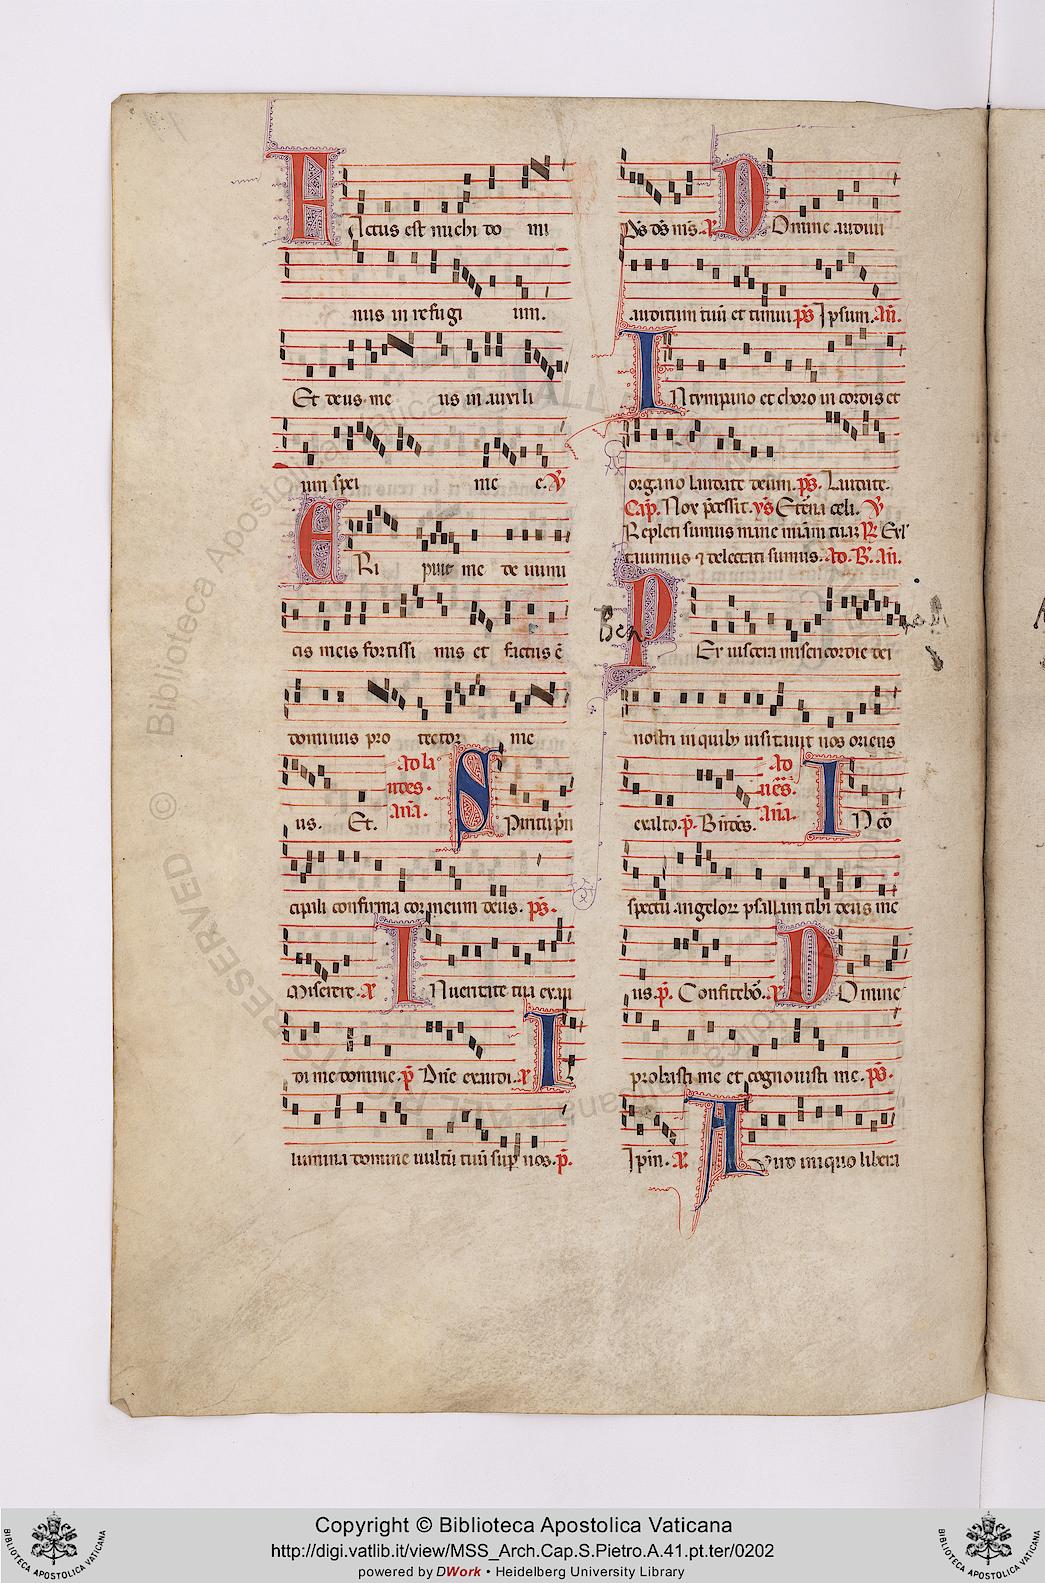 FActus est michi do mi
nus in refugi um.
Et deus me us in auxili
um spei me e. V
ERi puit me de inimi
cis meis fortissi mis et factus ē
dominus pro tector me
us. Et. Ad la
udes.
Aña. SPiritu pⁱn
cipali confirma cor meum deus. ps.
Miserere. INueritate tua exau
di me domine. p̄ Dñe exaudi. I
lumina domine uultū tuū sup nos. p̄.
Ds ds ms. DOmine audiui
auditum tuū et timui ps Ipsum. Añ.
IN tympano et choro in cordis et
organo laudate deum. ps. Laudate.
Cap. Nox p̄cessit. ys Eterna celi. V
Repleti sumus mane
tauimus ⁊ delectati sumus. Ad. B. Añ.
PEr uiscera misericordie dei
Ben
nostri in quibȝ uisitauit nos oriens
exalto. p̄. Ad
Aña. IN cō
spectu angeloꝝ psallam tibi deus me
us. p̄. Confitebō. DOmine
probasti me et cognouisti me. ps.
A uiro iniquo libera
© Biblioteca Apostolica Vaticana ALL RIGHTS RESERVED
BIBLIOTECA APOSTOLICA VATICANA
Copyright © Biblioteca Apostolica Vaticana
http://digi.vatlib.it/view/MSS_Arch.Cap.S.Pietro.A.41.pt.ter/0202
powered by DWork • Heidelberg University Library
BIBLIOTECA APOSTOLICA VATICANA